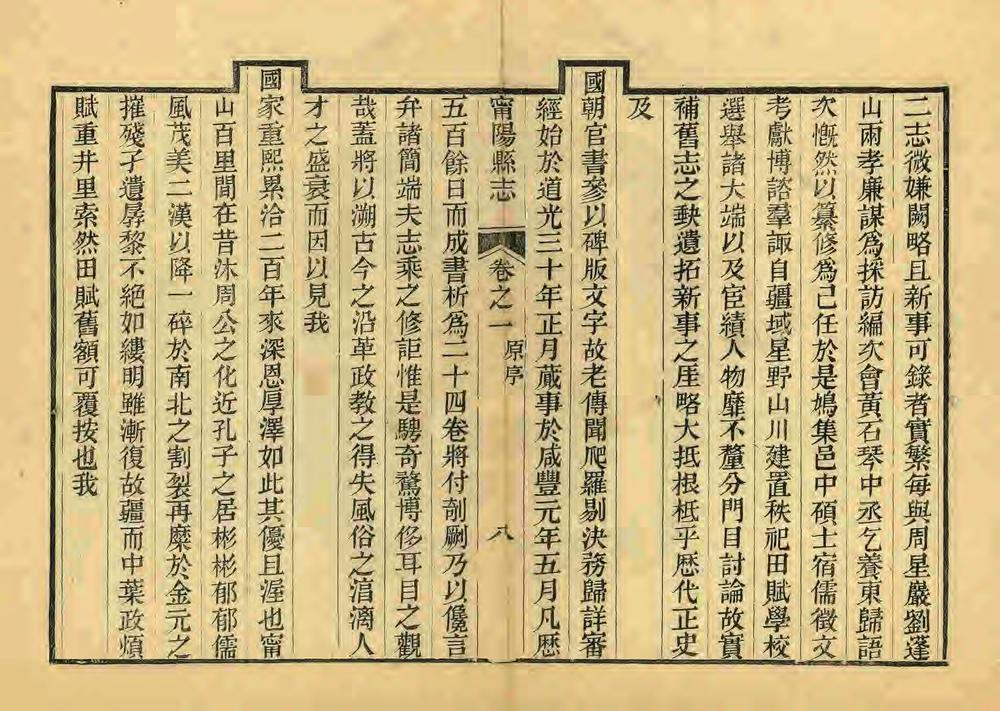 二志微嫌闕略且新事可錄者實繁每與周星嚴劉蓬
山兩孝廉謀爲採訪編次會黃石琴中丞乞養東歸語
次慨然以纂修爲己任於是鳩集邑中碩士宿儒徵文
考獻博諮羣諏自疆域星野山川建置秩祀田賦學校
選舉諸大端以及宦績人物靡不釐分門目討論故實
補舊志之缺遺拓新事之厓略大抵根柢乎歷代正史
及
國朝官書參以碑版文字故老傳聞爬羅剔決務歸詳審
經始於道光三十年正月蕆事於咸豐元年五月凡歷
甯陽縣志 卷之一 原序 八
五百餘日而成書析爲二十四卷將付剞劂乃以儳言
弁諸簡端夫志乘之修詎惟是騁奇驚博侈耳目之觀
哉蓋將以溯古今之沿革政教之得失風俗之淳漓人
才之盛衰而因以見我
國家重熙累洽二百年來深恩厚澤如此其優且渥也甯
山百里間在昔沐周公之化近孔子之居彬彬郁郁儒
風茂美二漢以降一碎於南北之割裂再糜於金元之
摧殘孑遺孱黎不絕如縷明雖漸復故疆而中葉政煩
賦重井里索然田賦舊額可覆按也我